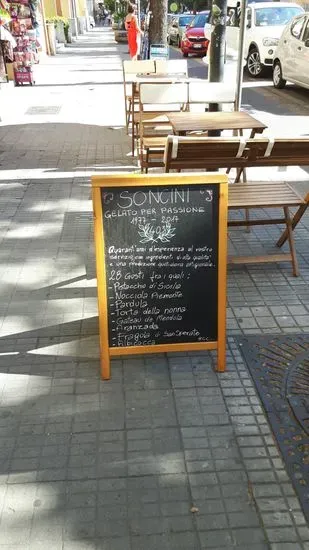 SONCINI
GELATO PER PASSIONE
1977 - 2017
40
Quarant'anni d'esperienza al vostro
servizio, con ingredienti di alta qualità
e una produzione quotidiana artigianale.
28 Gusti fra i quali:
- Pistacchio di Sicilia
- Nocciola Piemonte
- Pardula
- Torta della nonna
- Gateau de Mendula
- Aranzada
- Fragola di San Sperate
- Albicocca ecc.